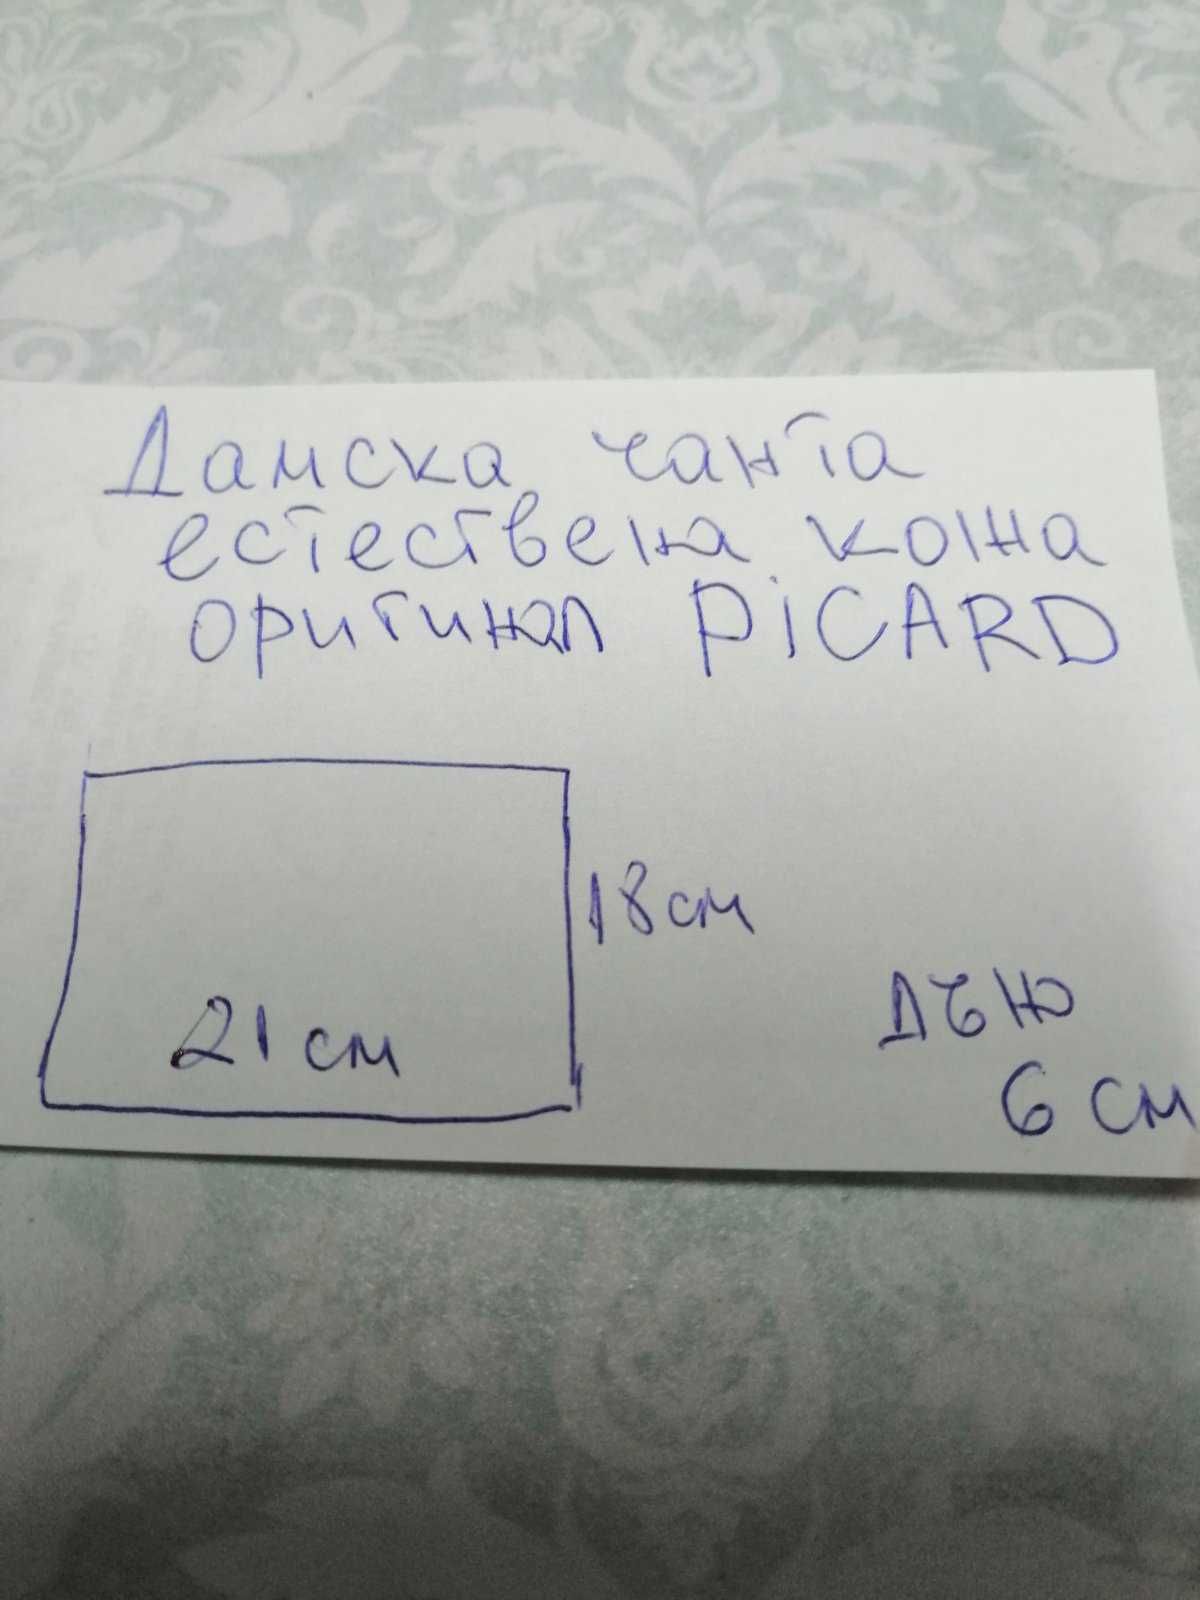 Дамска чанта
естествена кожа
оригинал PiCARD
18 см
21 см
дъно
6 см